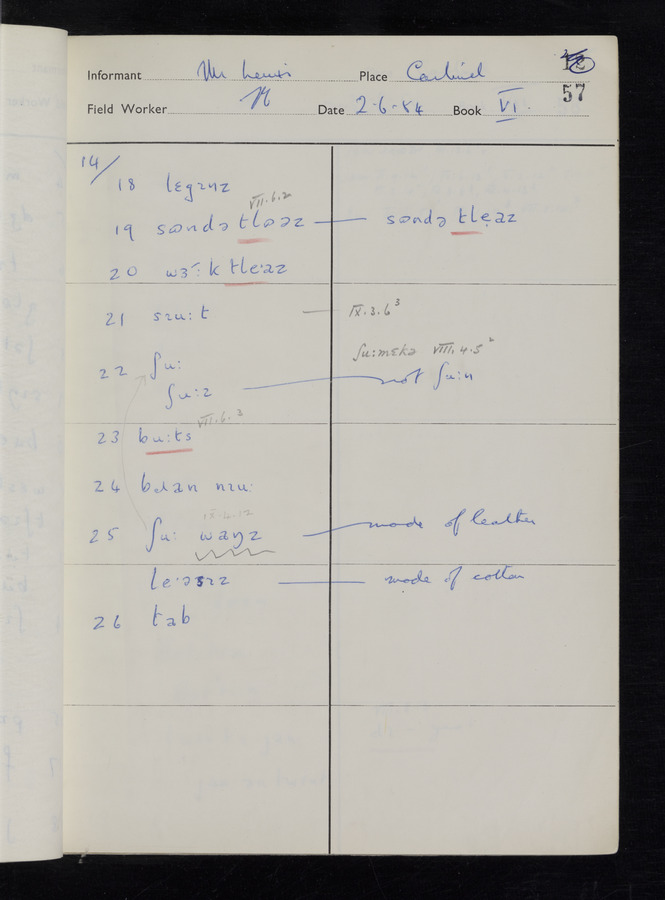 Informant Mr Lewis Place
Field Worker Date 2-6-54 Book VI.
57
14/
18 legɪnz
VII.6.2
19 sɒndə tloəz — sɒndə tleəz
20 wɜːk tleəz
21 sɪuːt — IX.3.6³
ʃuːmekə VIII.4.5
22 ʃuː
ʃuːz — not ʃuːn
VII.6.3
23 buːts
24 bɹan nɪuː
IX.4.12
25 ʃuː waŋz — made of leather
leːəsɪz — made of cotton
26 tab